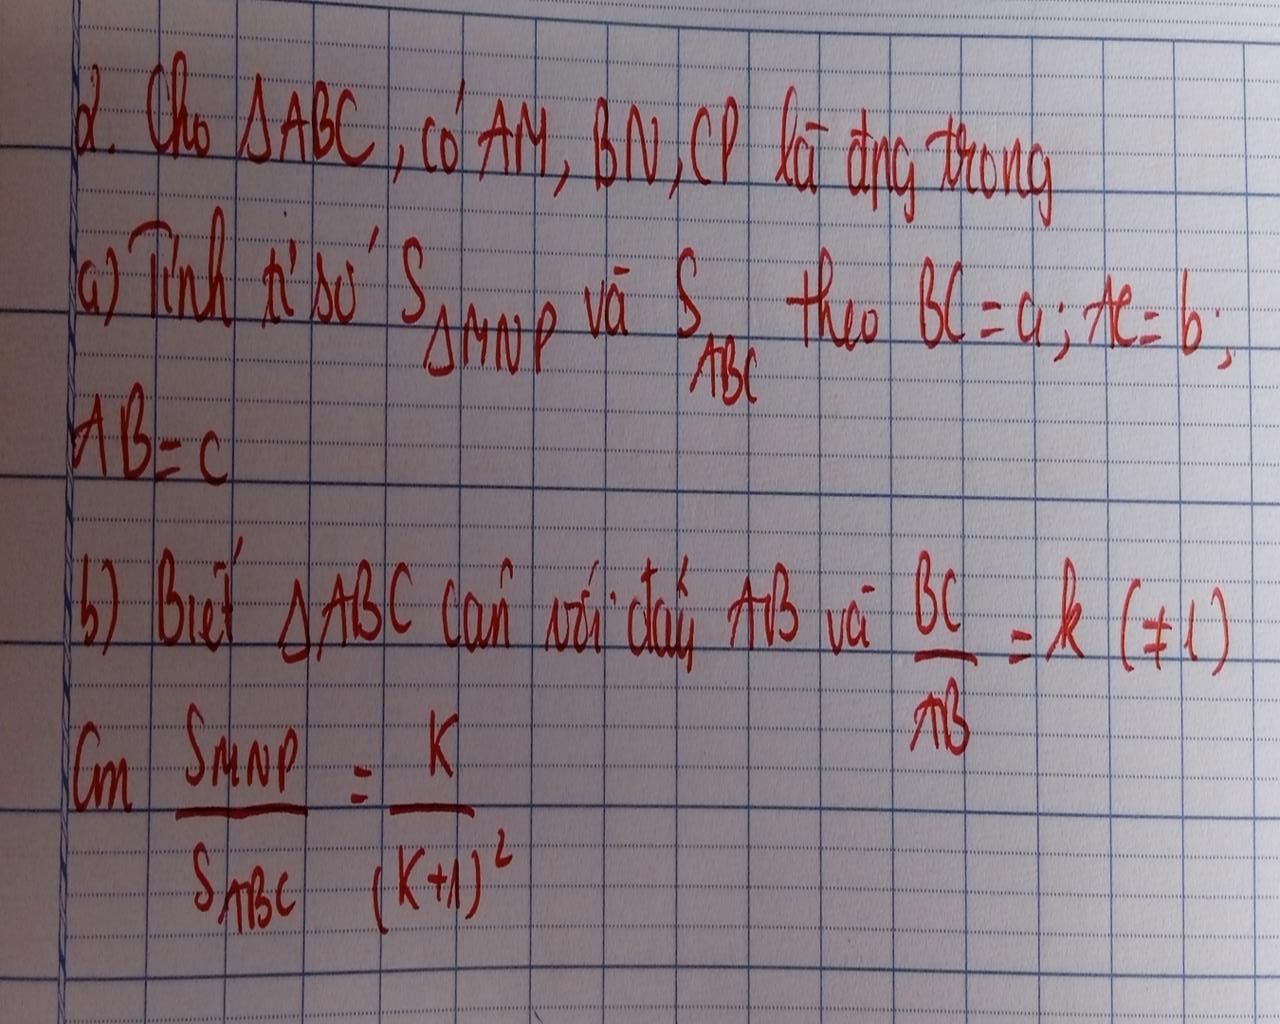 2. Cho ΔABC, có AM, BN, CP là đng trong
a) Tính tỉ số S ΔMNP và S ABC theo BC = a; AC = b;
AB = c
b) Biết ΔABC cân với đáy AB và BC/AB = k (≠1)
Cm S MNP / S ABC = K / (K+1)²